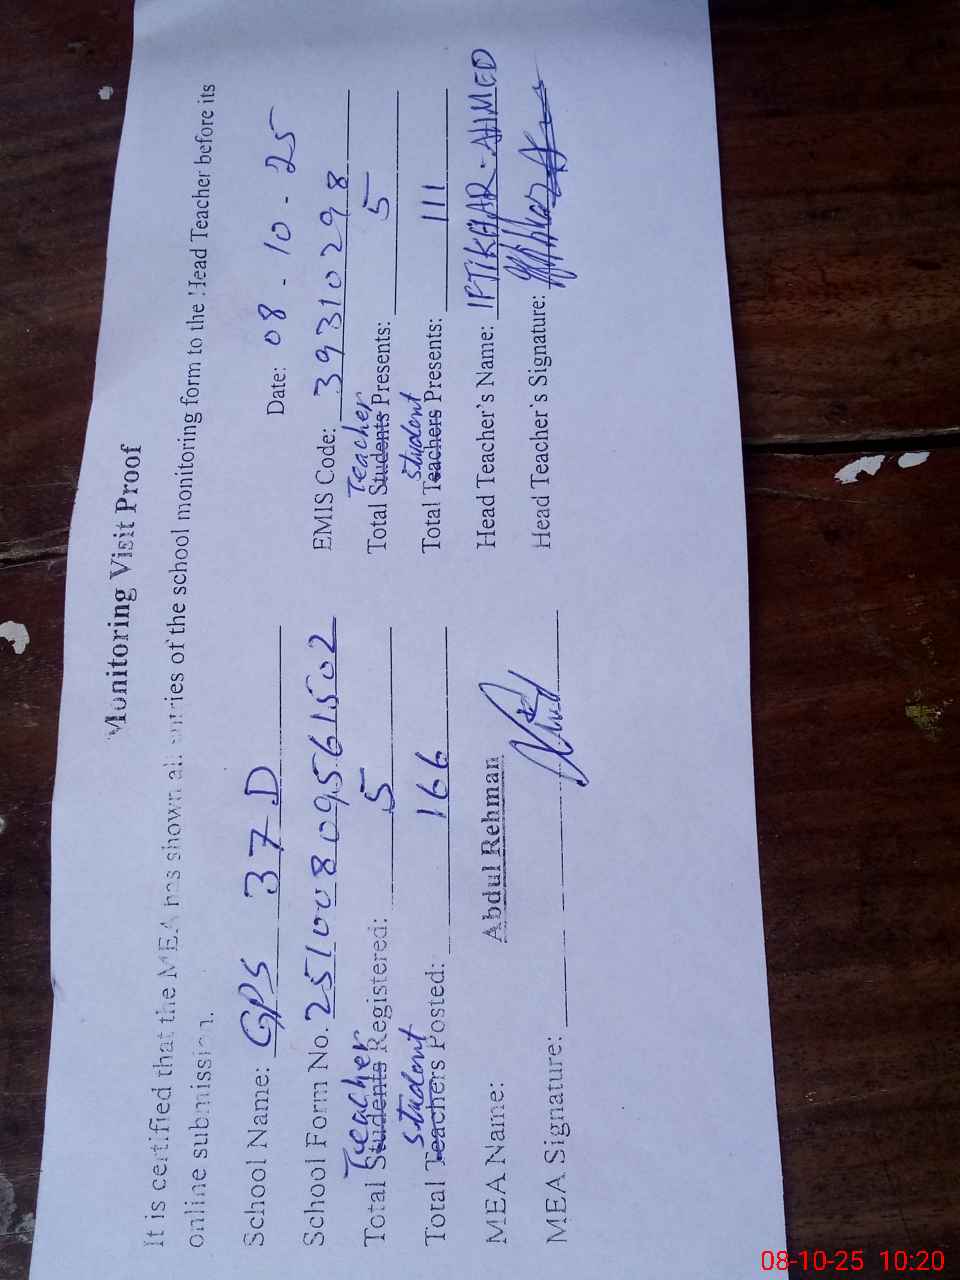 Monitoring Visit Proof
It is certified that the MEA has shown all entries of the school monitoring form to the Head Teacher before its
online submission.
Date: 08-10-25
School Name: GPS 37 D
EMIS Code: 39310298
School Form No. 25100809561502
Teacher
Total Students Registered: 5
Teacher
Total Students Presents: 5
student
Total Teachers Posted: 166
student
Total Teachers Presents: 111
MEA Name: Abdul Rehman
Head Teacher's Name: IFTIKHAR-AHMED
MEA Signature:
Head Teacher's Signature:
08-10-25 10:20